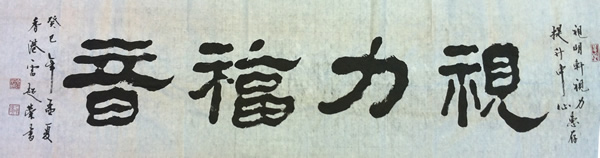 祖明軒視力
提升中心惠存
視力福音
癸巳年孟夏
香港雲起榮書